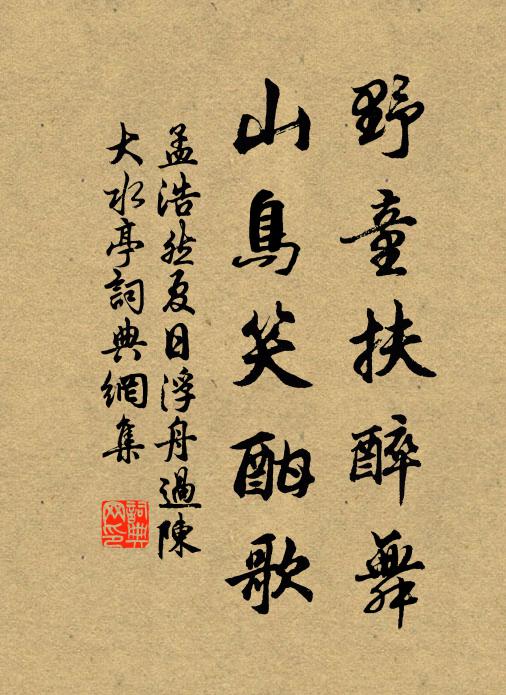 野童扶醉舞
山鳥笑酣歌
孟浩然夏日浮舟過陳
大水亭詞典網集
詞典
網印